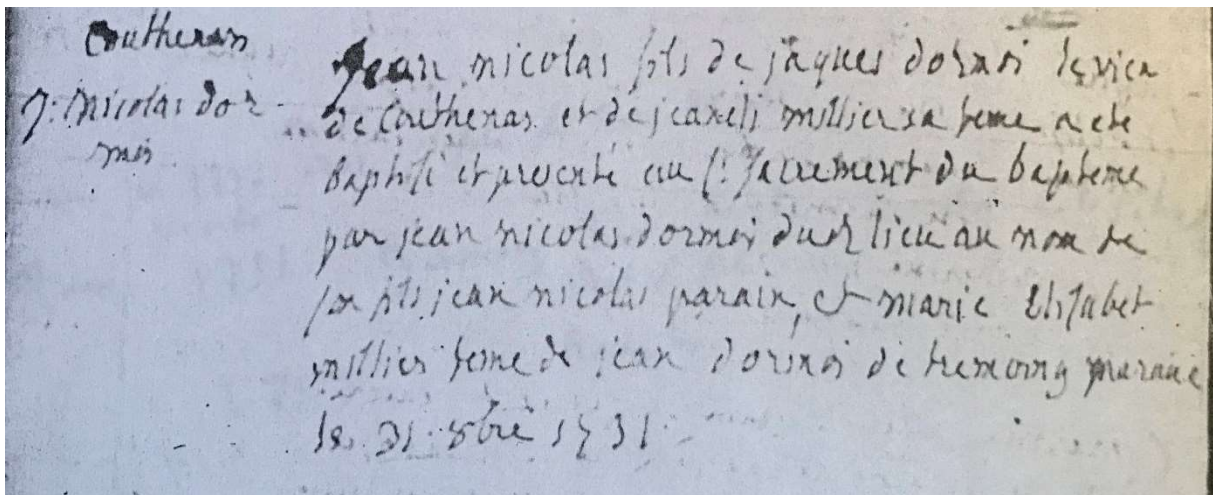 Couthenan
J: nicolas dor
moi
Jean nicolas fils de jaques dormoi
de Couthenas et de jean millier sa feme a eté
baptisé et presenté au St. Sacrement du bapteme
par jean nicolas dormoi dud lieu au nom de
son fils jean nicolas parain, et marie Elisabet
millier feme de jean dormoi de tremoing maraine
le 31 8bre 1731